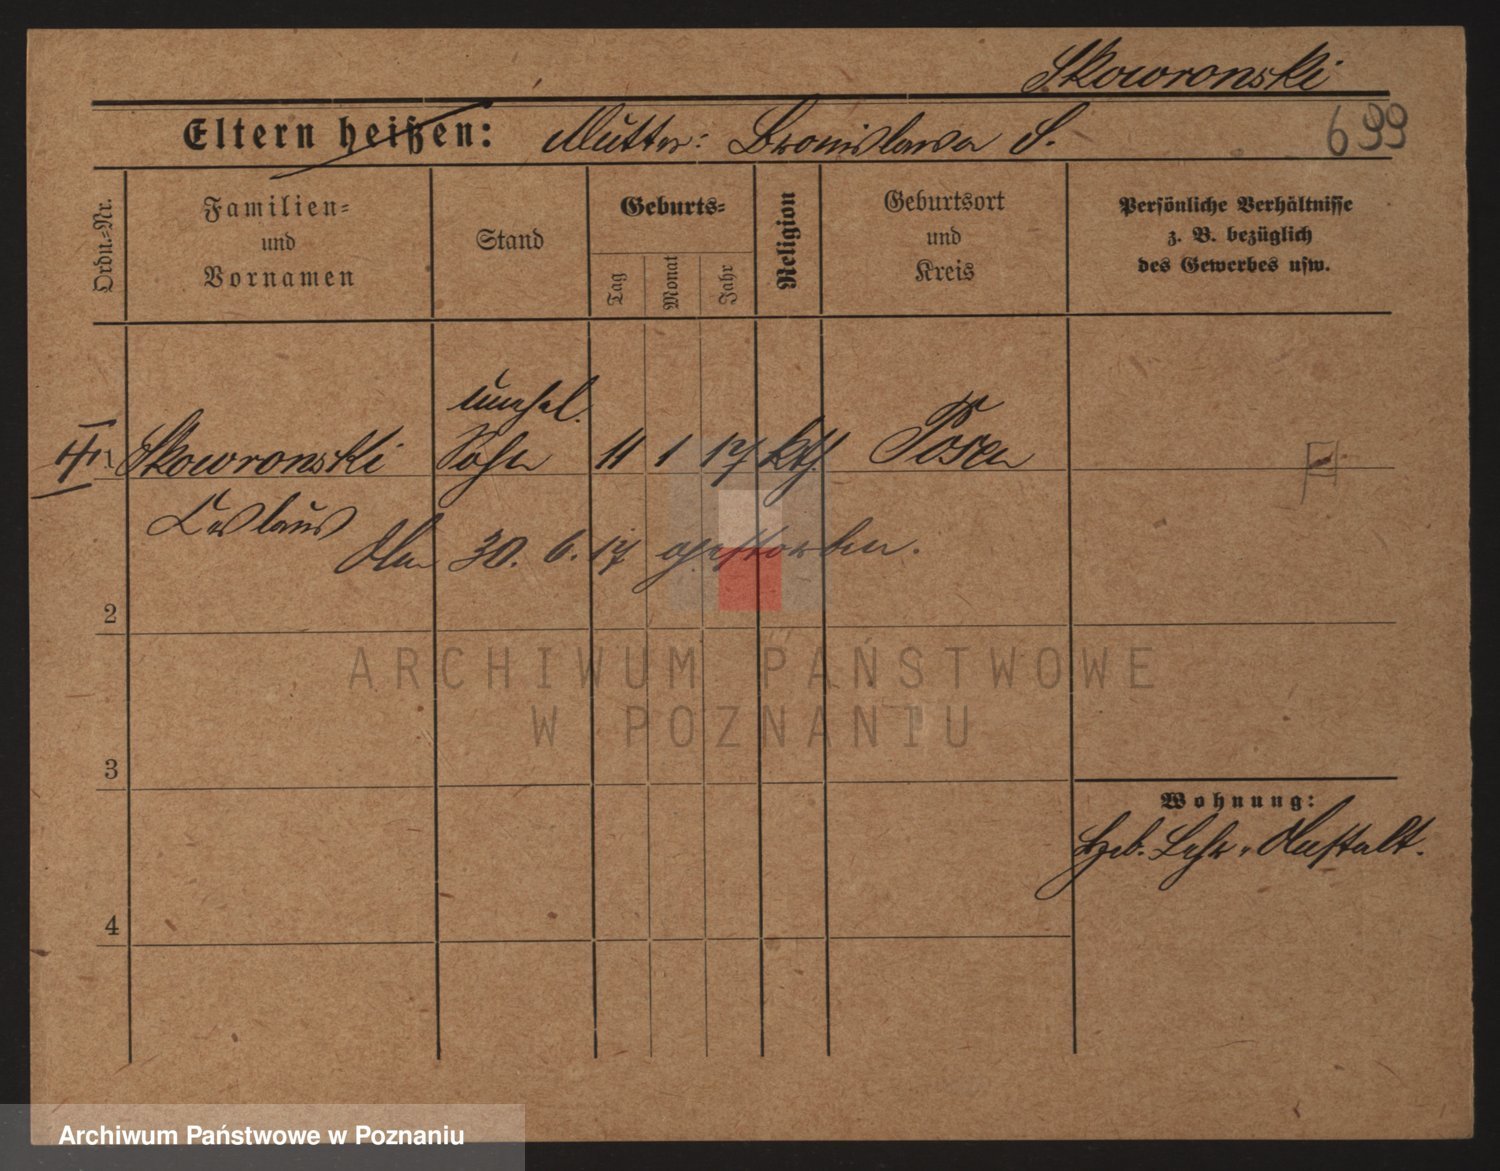 Skowronski
Eltern heißen: Mutter: Bronislawa S.
699
Ordn.=Nr.
Familien=
und
Vornamen
Stand
Geburts=
Tag
Monat
Jahr
Religion
Geburtsort
und
Kreis
Persönliche Verhältnisse
z. B. bezüglich
des Gewerbes usw.
unehel.
1 Skowronski Sohn 11 1 17 kth. Posen
Ceslaus
Am 30. 6. 17 gestorben.
2
ARCHIWUM PAŃSTWOWE
W POZNANIU
3
Wohnung:
Heb. Lehr-Anstalt.
4
Archiwum Państwowe w Poznaniu